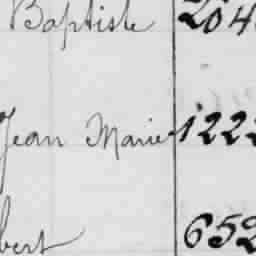 Baptiste 204
Jean Marie 1222
bert 652